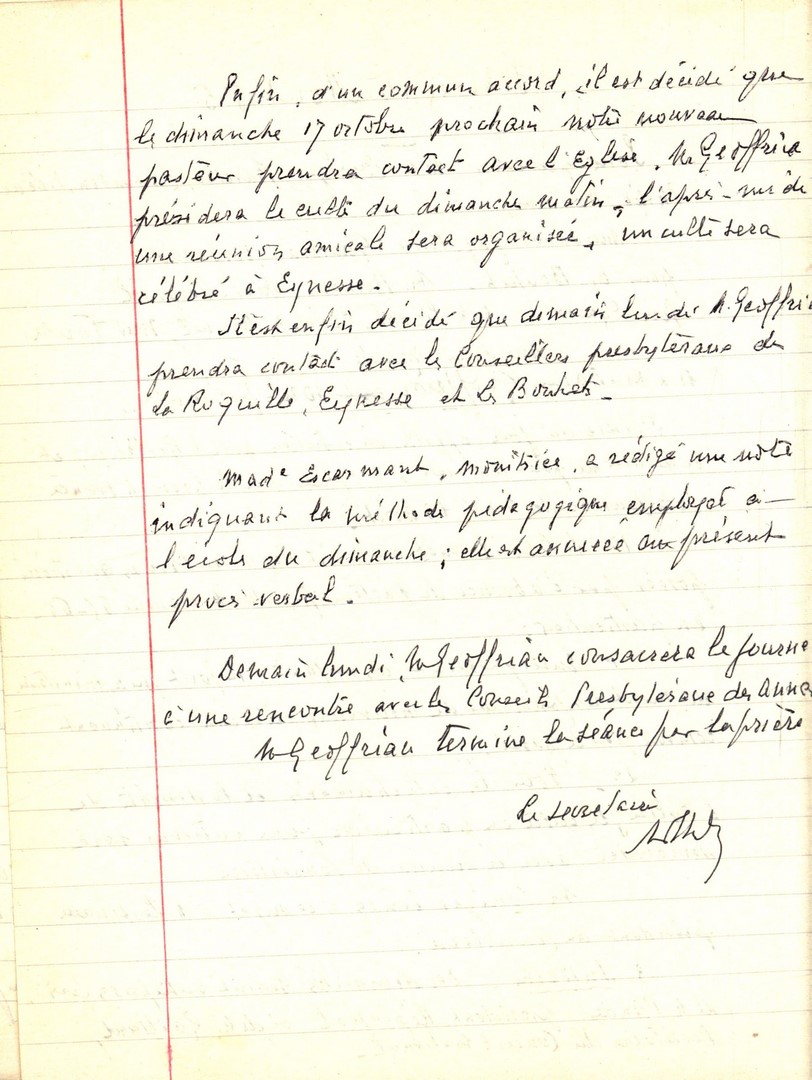 Enfin, d'un commun accord, il est décidé que
le dimanche 17 octobre prochain notre nouveau
pasteur prendra contact avec l'Eglise. Mr Geoffria
présidera le culte du dimanche matin, l'après-midi
une réunion amicale sera organisée, un culte sera
célébré à Eynesse.
Il est enfin décidé que demain lundi Mr Geoffri
prendra contact avec les Conseillers presbytéraux de
la Roquille, Eynesse et les Bouhets.
Made Escarmant, monitrice, a rédigé une note
indiquant la méthode pédagogique employée à
l'école du dimanche ; elle est annexée au présent
procès-verbal.
Demain lundi, Mr Geoffriau consacrera la journé
à une rencontre avec les Conseils Presbytéraux des Anne
Mr Geoffriau termine la séance par la prière
Le secrétaire